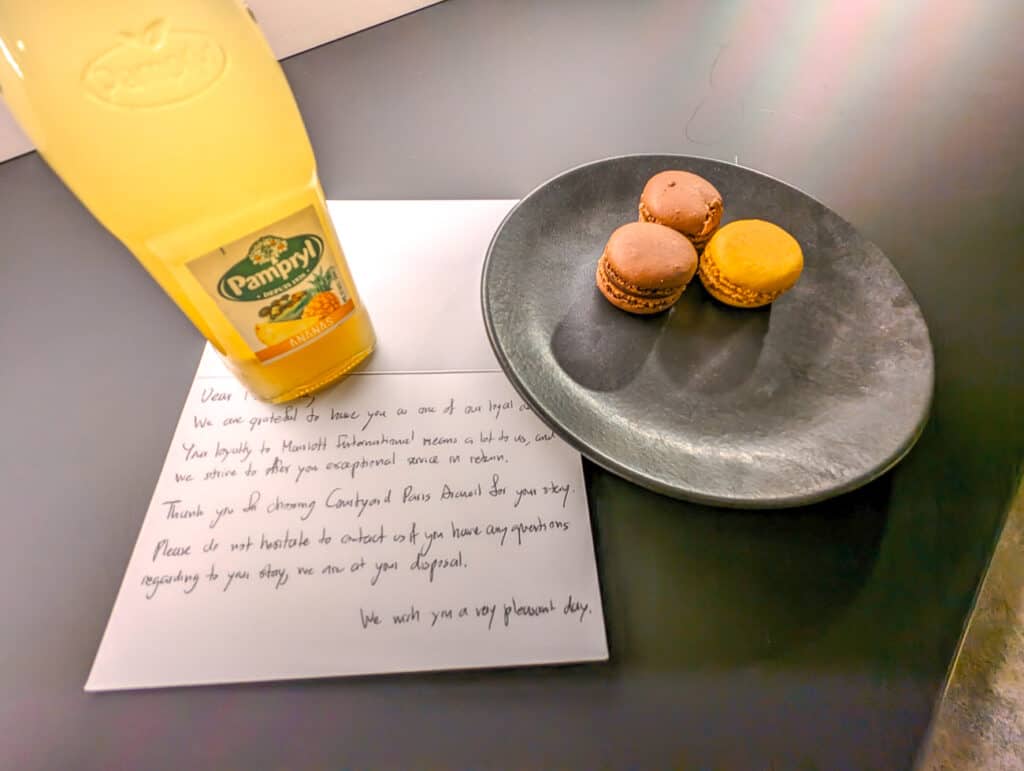 Pampryl
Pampryl
DEPUIS 1926
ANANAS
Dear
We are grateful to have you as one of our loyal
Your loyalty to Marriott International means a lot to us, and
we strive to offer you exceptional service in return.
Thank you for choosing Courtyard Paris Arcueil for your stay.
Please do not hesitate to contact us if you have any questions
regarding to your stay, we are at your disposal.
We wish you a very pleasant day.